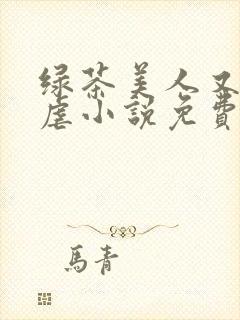 绿茶美人又
虐小説免費
馬青